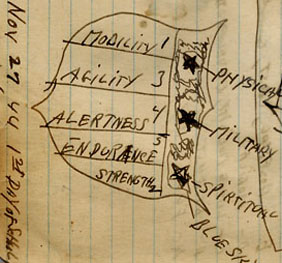 MOBILITY 1
AGILITY 3
ALERTNESS 4
ENDURANCE 5
STRENGTH 2
PHYSICAL
MILITARY
SPIRITUAL
BLUE
NOV 27, 44 1ST DAY OF